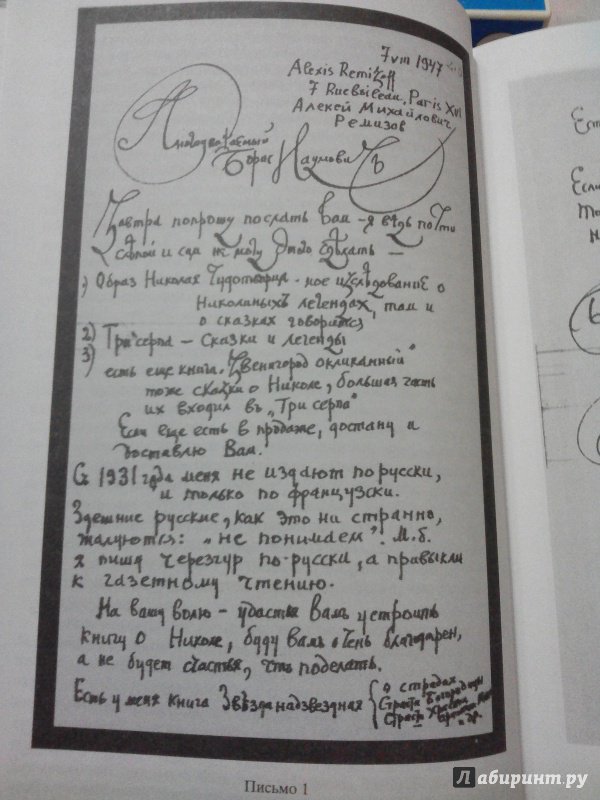 7 VIII 1947
Alexis Remizoff
7 Rue Boileau, Paris XVI
Алексей Михайлович
Ремизов
Многоуважаемый
Борис Наумовичъ
Завтра попрошу послать Вам – я ведь почти
слепой и сам не могу этого сдѣлать –
1) Образ Николая Чудотворца – мое изслѣдование о
Николиныхъ легендах, там и
о сказках говорится
2) Три серпа – Сказки и легенды
3) есть еще книга „Звенигород окликанный"
тоже сказки о Николе, большая часть
их входил въ „Три серпа"
Если еще есть в продаже, достану и
доставлю Вам.
С 1931 года меня не издают по русски,
и только по французски.
Здешние русские, как это ни странно,
жалуются: „не понимаем". М.б.
я пишу черезчур по-русски, а привыкли
к газетному чтению.
На вашу волю – удастся Вамъ устроить
книгу о Николе, буду вамъ очень благодарен,
а не будет счастья, что поделать.
Есть у меня книга Звѣзда надзвездная { о страдах
Страсти Богородицы
Страсти
и др.
Письмо 1
Лабиринт.ру